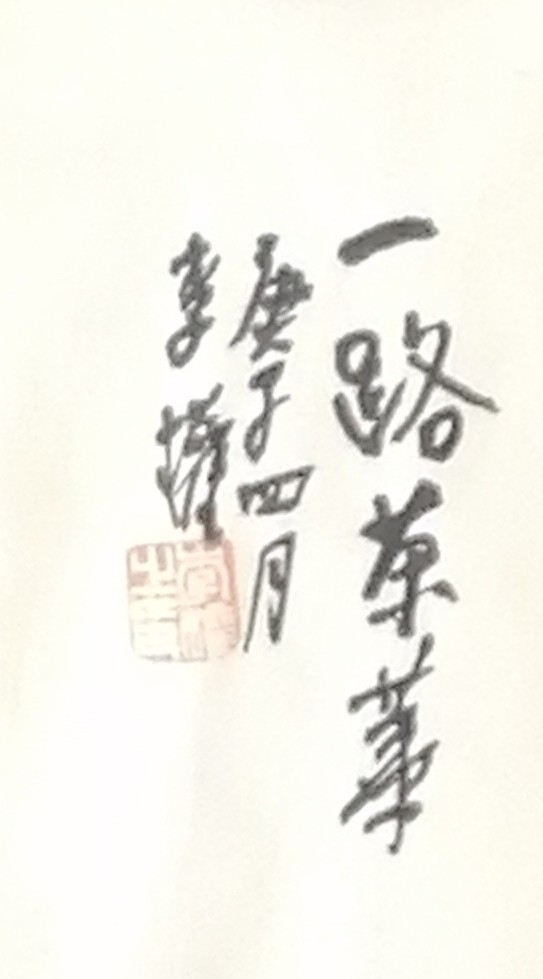 一路荣華
庚子四月
李權